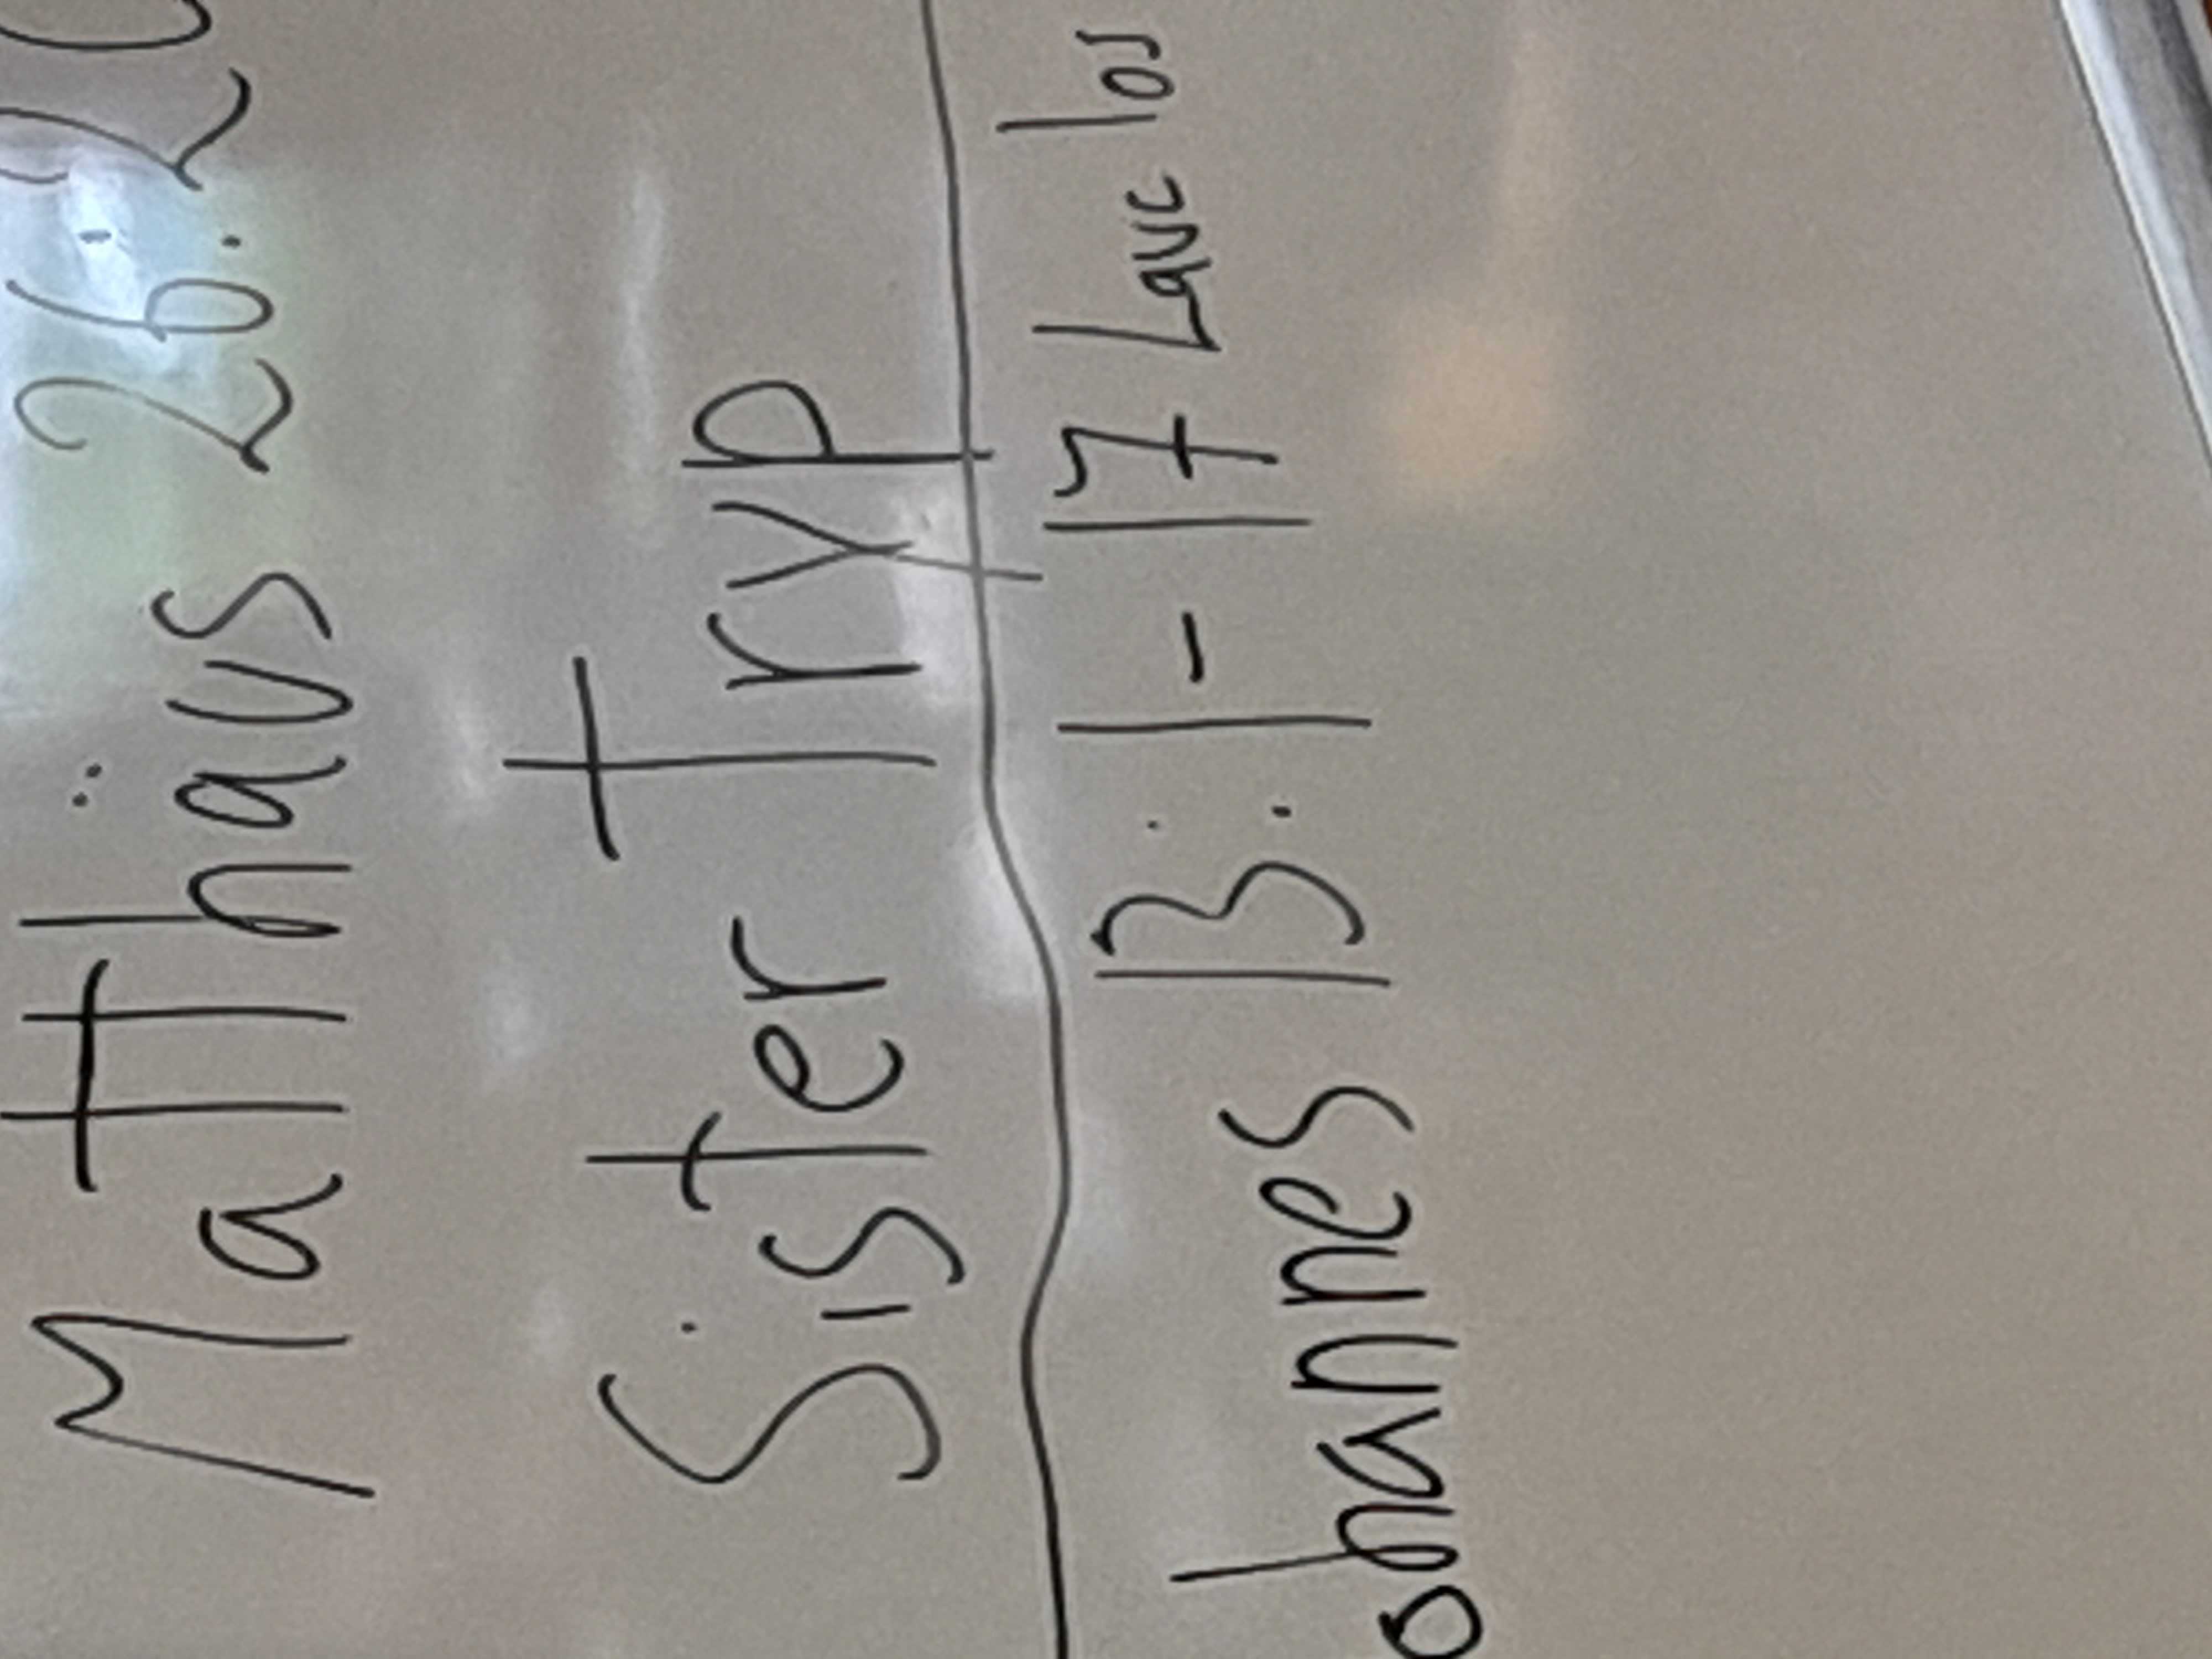 Matthäus 26:20
Sister Tryp
ohannes 13:1-17 Lauc los